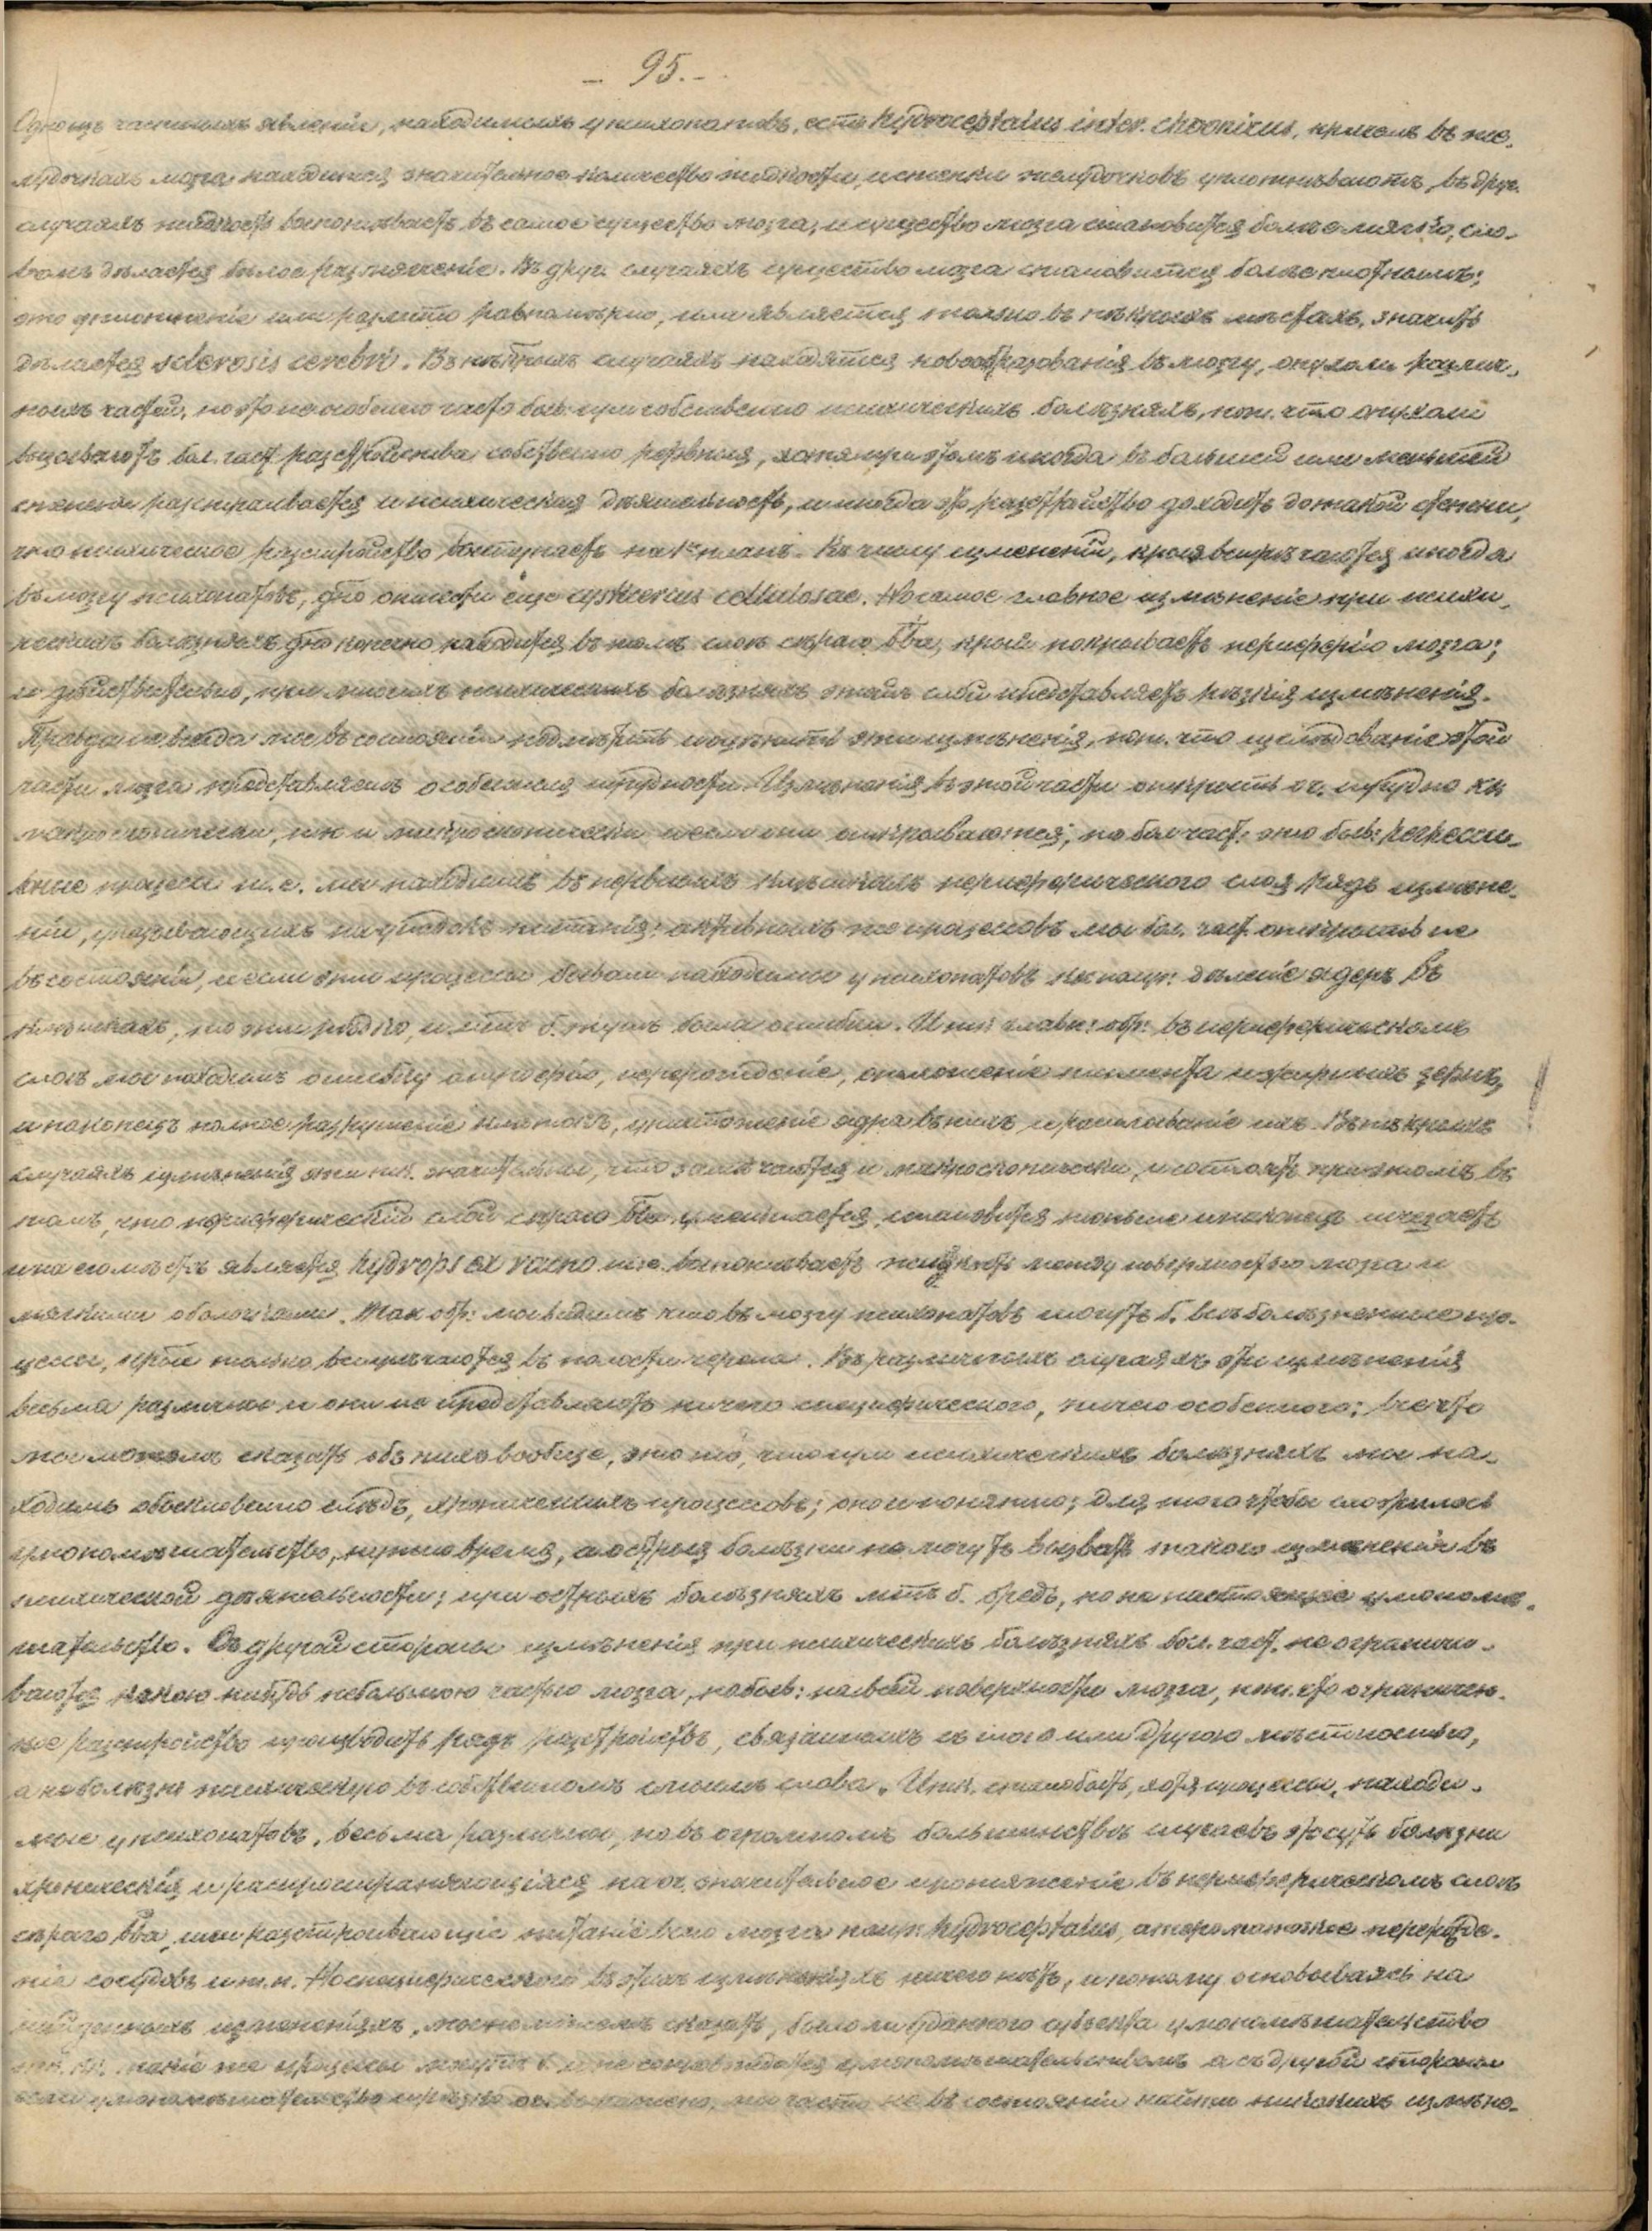 – 95. –
Одно изъ частыхъ явленій, находимыхъ у психопатовъ, есть hydrocephalus inter. chronicus, причемъ въ же-
лудочкахъ мозга находится значительное количество жидкости, и стенки желудочковъ уплотнѣваютъ, въ друг.
случаяхъ жидкость въ самое существо мозга, и существо мозга становится болѣе мягкимъ, сло-
вомъ дѣлается бѣлое размягченіе. Въ друг. случаяхъ существо мозга становится болѣе плотнымъ;
это уплотненіе или разлито равномѣрно, или является только въ нѣкрыхъ мѣстахъ, значитъ
дѣлается sclerosis cerebri. Въ нѣкрыхъ случаяхъ находятся новообразованія въ мозгу, опухоли различ-
ныхъ частей, но это не особенно часто быв. при собственно психическихъ болѣзняхъ, пот. что опухоли
вызываютъ бол. част. разстройства собственно нервныя, хотя при этомъ иногда въ большей или меньшей
степени разстраивается и психическая дѣятельность, и иногда это разстройство доходитъ до такой степени,
что психическое разстройство выступаетъ на 1й планъ. Къ числу измененій, крыя встрѣчаются иногда
въ мозгу психопатовъ, отнести еще cysticercus cellulosae. Но самое главное измѣненіе при психи-
ческихъ болѣзняхъ конечно находится въ томъ слоѣ сѣраго в–ва, крый покрываетъ периферію мозга;
и дѣйствительно, при многихъ психическихъ болѣзняхъ этотъ слой представляетъ рѣзкія измѣненія.
Правда не всегда мы въ состояніи подмѣтить и оцѣнить эти измѣненія, пот. что изслѣдованіе этой
части мозга представляетъ особенныя трудности. Измѣненія въ этой части открыть оч. трудно кк
макроскопически, тк и микроскопически и если они открываются, то бол. част. это быв. регресси-
вные процессы т. е. мы находимъ въ нервныхъ клѣткахъ периферическаго слоя рядъ измѣне-
ній, указывающихъ на упадокъ питанія; активныхъ же процессовъ мы бол. част. открыть не
въ состояніи, и если эти процессы бывали находимы у психопатовъ кк напр. дѣленіе ядеръ въ
клѣткахъ, то это рѣдко, и мтъ б. тутъ была ошибка. Итк. главн. обр. въ периферическомъ
слоѣ мы находимъ атрофію, перерожденіе, отложеніе пигмента и жирныхъ зеренъ,
и наконецъ полное разрушеніе клѣтокъ, уничтоженіе ядра въ нихъ и ихъ. Въ нѣкрыхъ
случаяхъ измѣненія эти тк. значительны, что замѣчаются и макроскопически, и состоятъ при этомъ въ
томъ, что периферическій слой сѣраго в–ва уменьшается, становится тоньше и наконецъ исчезаетъ
и на его мѣстѣ является hydrops ex vacuo т. е. жидкость между поверхностью мозга и
мягкими оболочками. Так. обр. мы видимъ что въ мозгу психопатовъ могутъ б. всѣ болѣзненные про-
цессы, крые только встрѣчаются въ полости черепа. Въ различныхъ случаяхъ эти измѣненія
весьма различны и они не представляютъ ничего специфическаго, ничего особеннаго; все что
мы можемъ сказать объ нихъ вообще, это то, что при психическихъ болѣзняхъ мы на-
ходимъ обыкновенно слѣдъ хроническихъ процессовъ; оно и понятно; для того чтобы
умопомѣшательство, нужно время, а острыя болѣзни не могутъ вызвать такого измѣненія въ
психической дѣятельности; при острыхъ болѣзняхъ мтъ б. бредъ, но не настоящее умопомѣ-
шательство. Съ другой стороны измѣненія при психическихъ болѣзняхъ бол. част. не ограничи-
ваются какою нибудь небольшою частью мозга, но быв. на всей поверхности мозга, пот. что ограничен-
ное разстройство производитъ рядъ разстройствъ, связанныхъ съ тою или другою мѣстностью,
а не болѣзнь психическую въ собственномъ смыслѣ слова. Итк. хотя процессы, находи-
мые у психопатовъ, весьма различны, но въ огромномъ большинствѣ случаевъ это суть болѣзни
хроническія и распространяющіяся на оч. значительное протяженіе въ периферическомъ слоѣ
сѣраго в–ва, или разстраивающіе питаніе всего мозга напр. hydrocephalus, атероматозное перерожде-
ніе сосудовъ и т. п. Но специфическаго въ этихъ измѣненіяхъ ничего нѣтъ, и потому основываясь на
найденныхъ измѣненіяхъ, мы не можемъ сказать, было ли у даннаго субъекта умопомѣшательство
или нѣтъ. такіе же процессы могутъ б. и не сопровождаться умопомѣшательствомъ а съ другой стороны
если умопомѣшательство и рѣзко оч. выражено, мы часто не въ состояніи найти никакихъ измѣне-